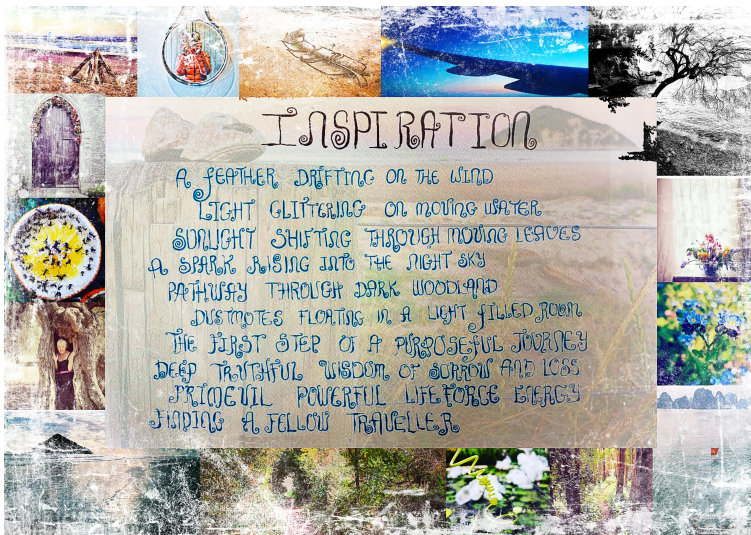 INSPIRATION
A FEATHER DRIFTING ON THE WIND
LIGHT GLITTERING ON MOVING WATER
SUNLIGHT SHIFTING THROUGH MOVING LEAVES
A SPARK RISING INTO THE NIGHT SKY
PATHWAY THROUGH DARK WOODLAND
DUSTMOTES FLOATING IN A LIGHT FILLED ROOM
THE FIRST STEP OF A PURPOSEFUL JOURNEY
DEEP TRUTHFUL WISDOM OF SORROW AND LOSS
PRIMEVIL POWERFUL LIFEFORCE ENERGY
FINDING A FELLOW TRAVELLER